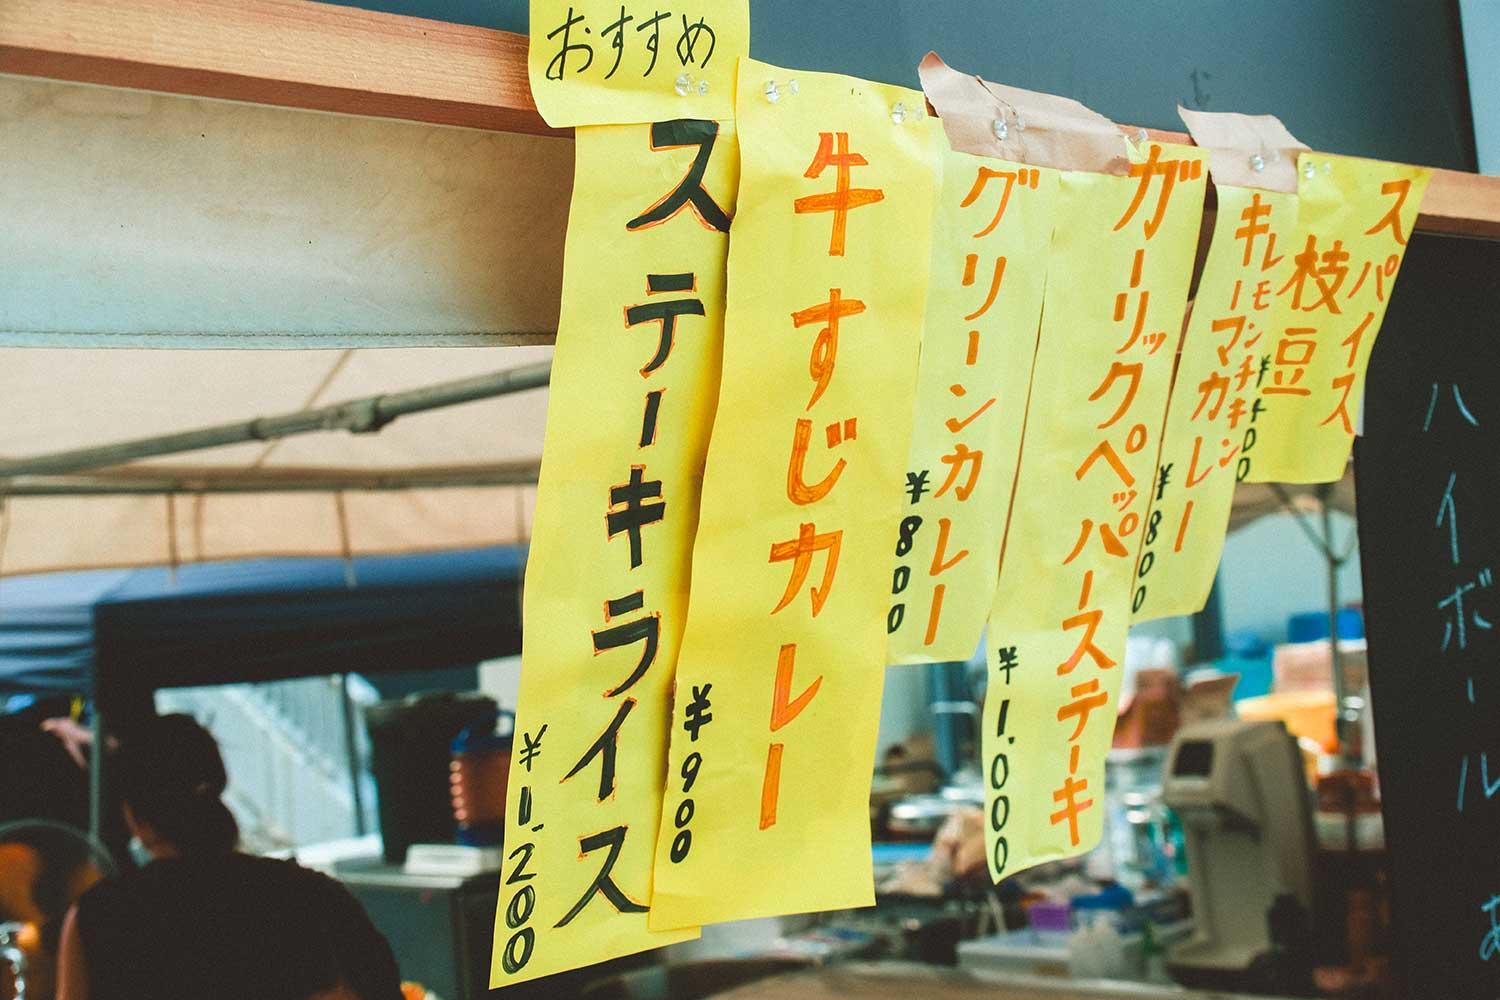 おすすめ
ステーキライス
¥1,200
牛すじカレー
¥900
グリーンカレー
¥800
ガーリックペッパーステーキ
¥1,000
キーマカレー
¥800
レモンチキン
スパイス
枝豆
ハイボール